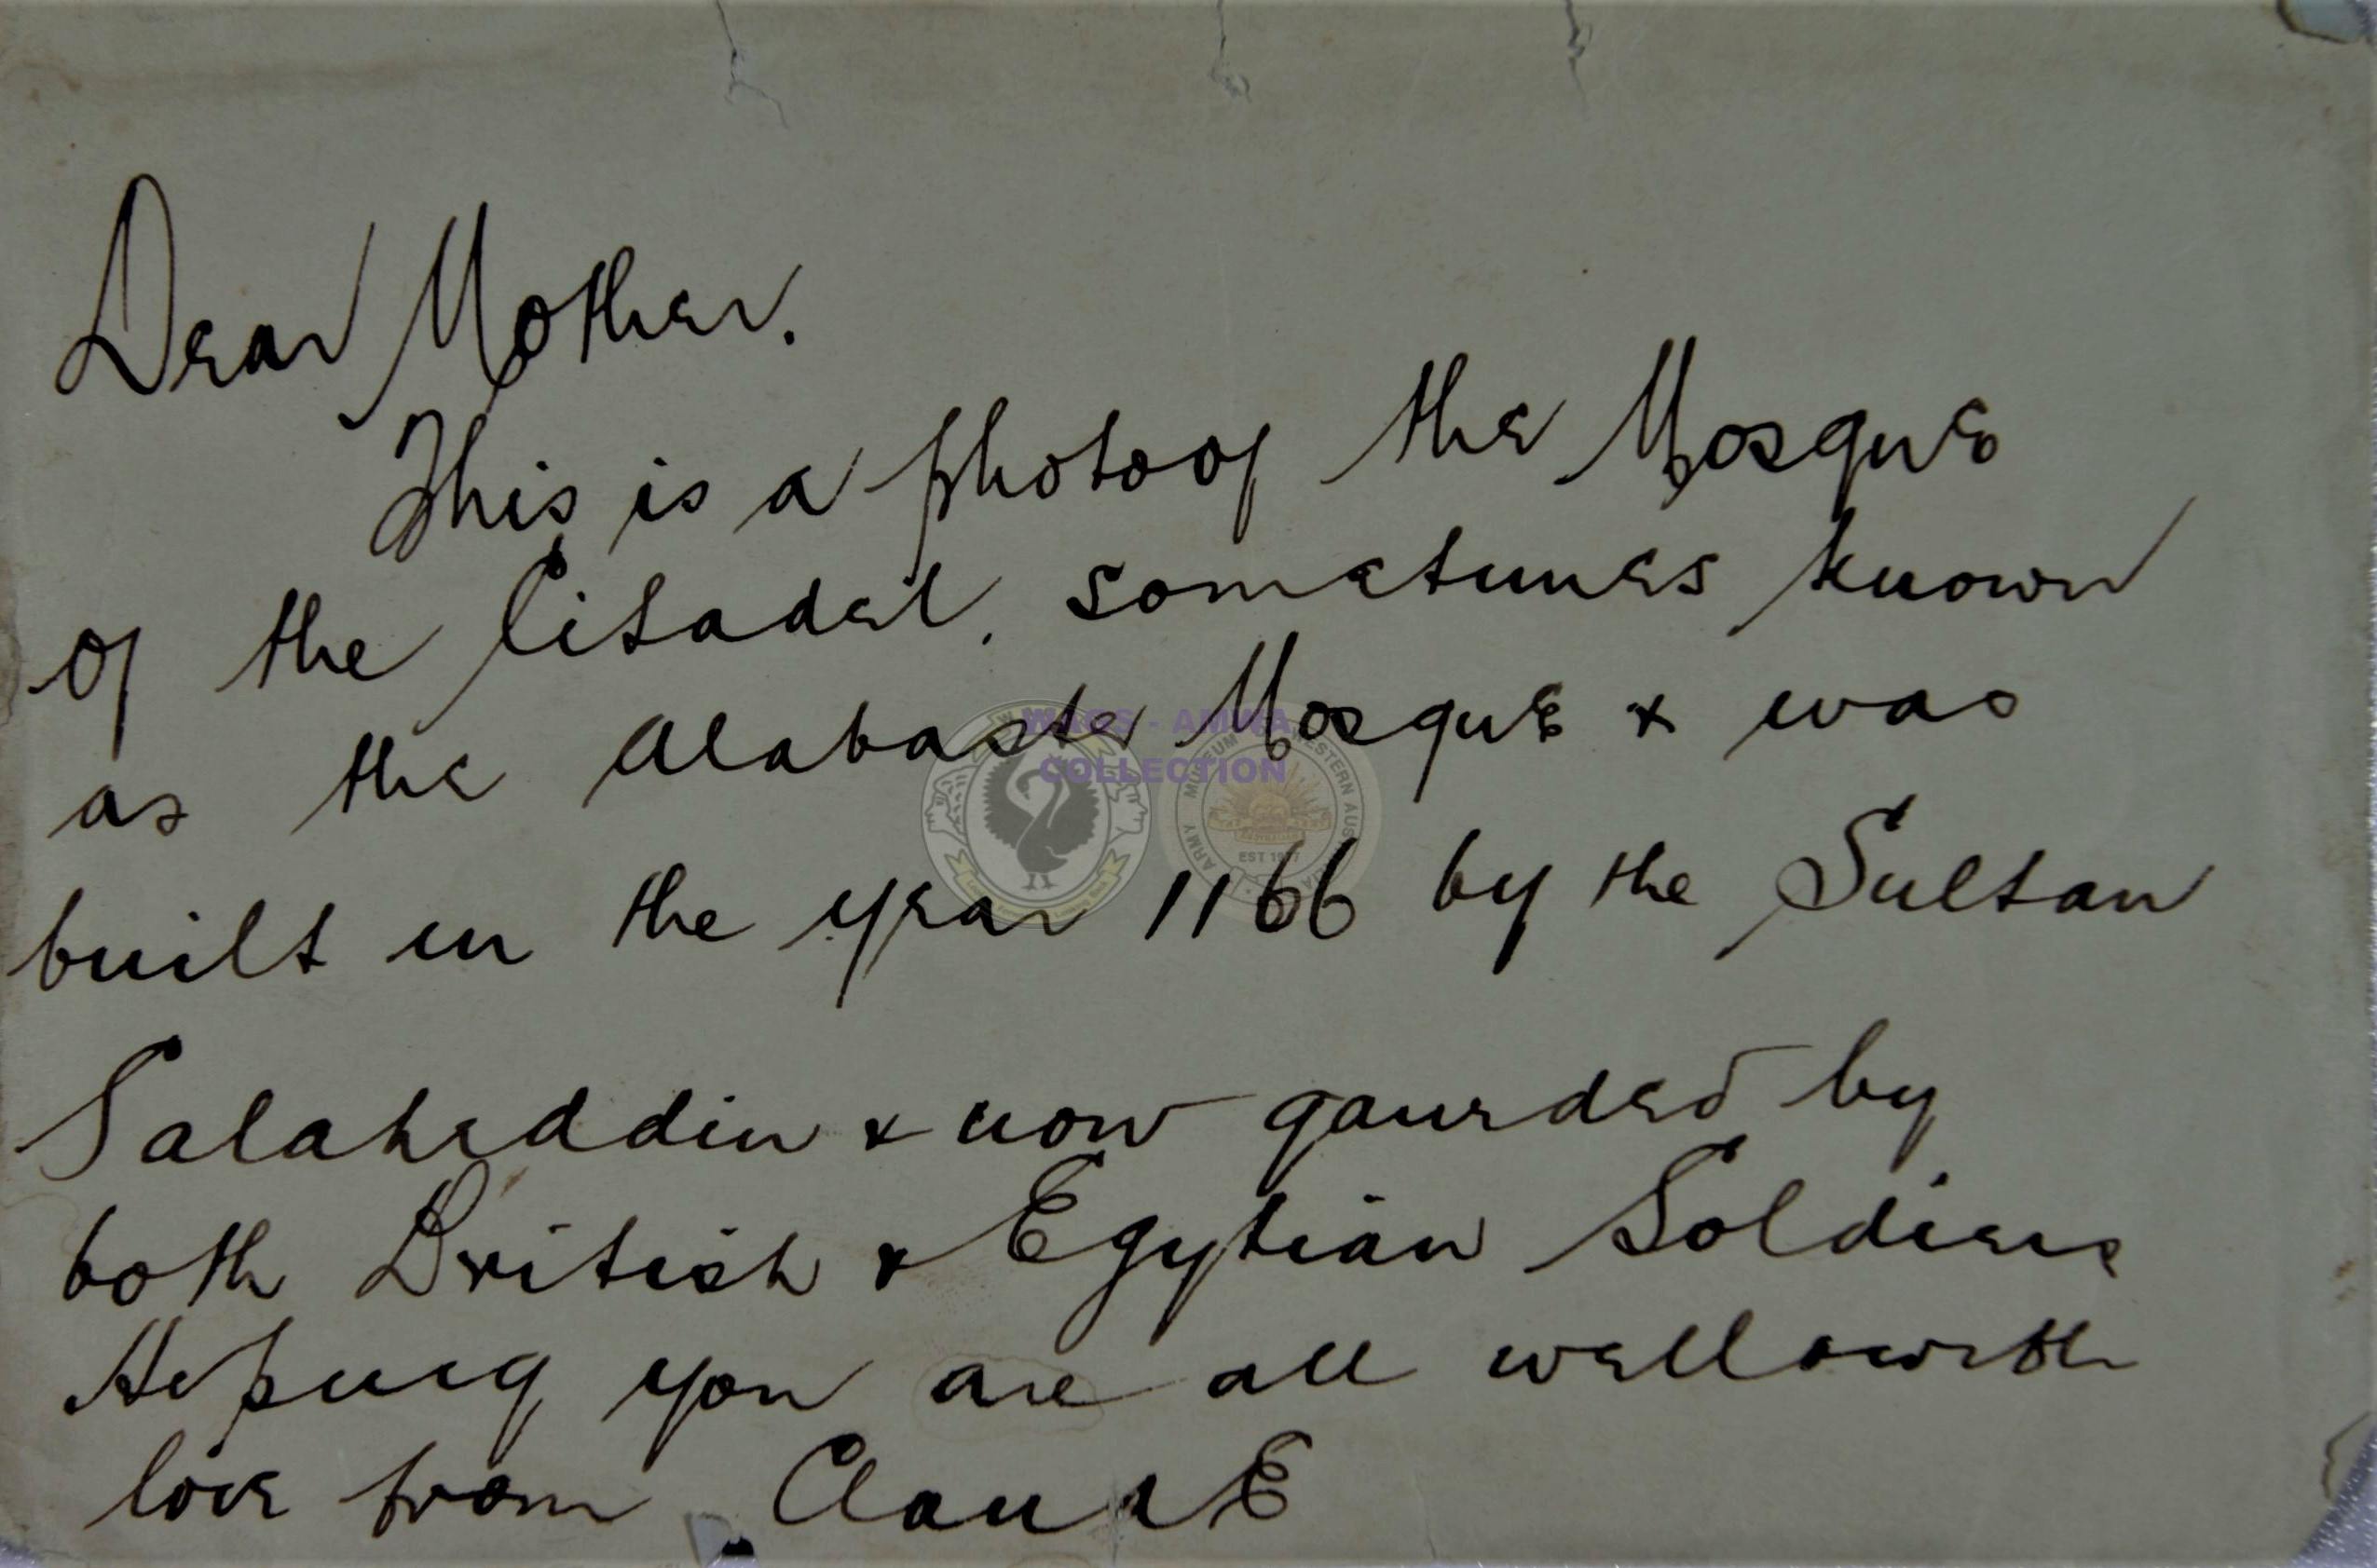 Dear Mother.
This is a photo of the Mosque
of the Citadel, sometimes known
as the Alabaste Mosque & was
built in the year 1166 by the Sultan
Salaheddin & now gaurded by
both British & Egytian Soldiers
Hoping you are all well & with
love from Claude
WAGS - AMWA
COLLECTION
ARMY MUSEUM WESTERN AUSTRALIA
EST 1977